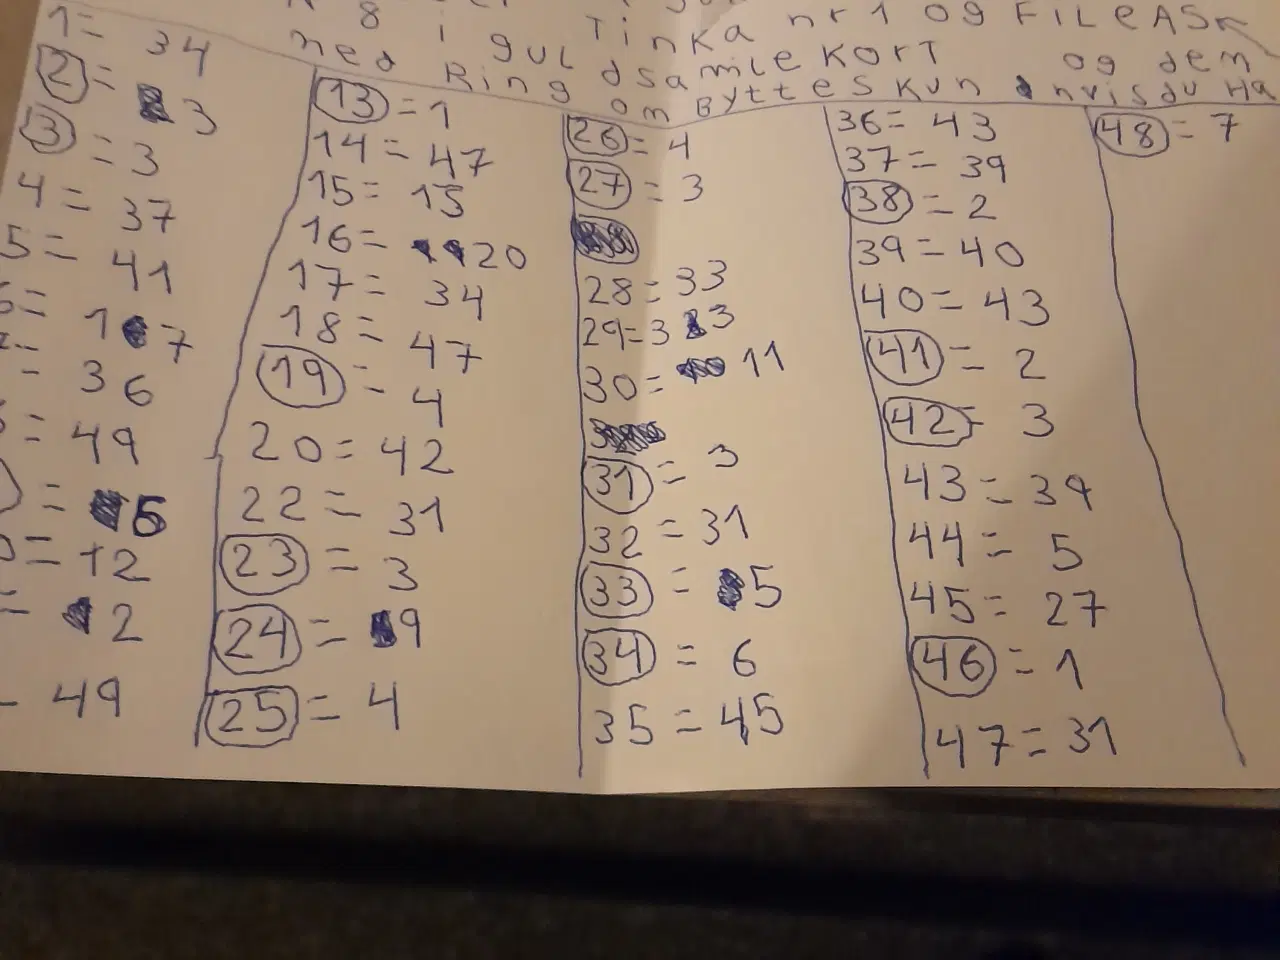 8 i gul Tinka nr 1 og FILEASK
med Ring dsamlekort og dem
om Byttes kun hvis du Ha
1= 34
2= 3
3= 3
4= 37
5= 41
= 17
= 36
= 49
= 6
= 12
= 2
- 49
13=1
14=47
15=15
16=20
17=34
18=47
19=4
20=42
22=31
23=3
24=9
25=4
26=4
27=3
28=33
29=33
30=11
31=3
32=31
33=5
34=6
35=45
36=43
37=39
38=2
39=40
40=43
41=2
42=3
43=39
44=5
45=27
46=1
47=31
48=7